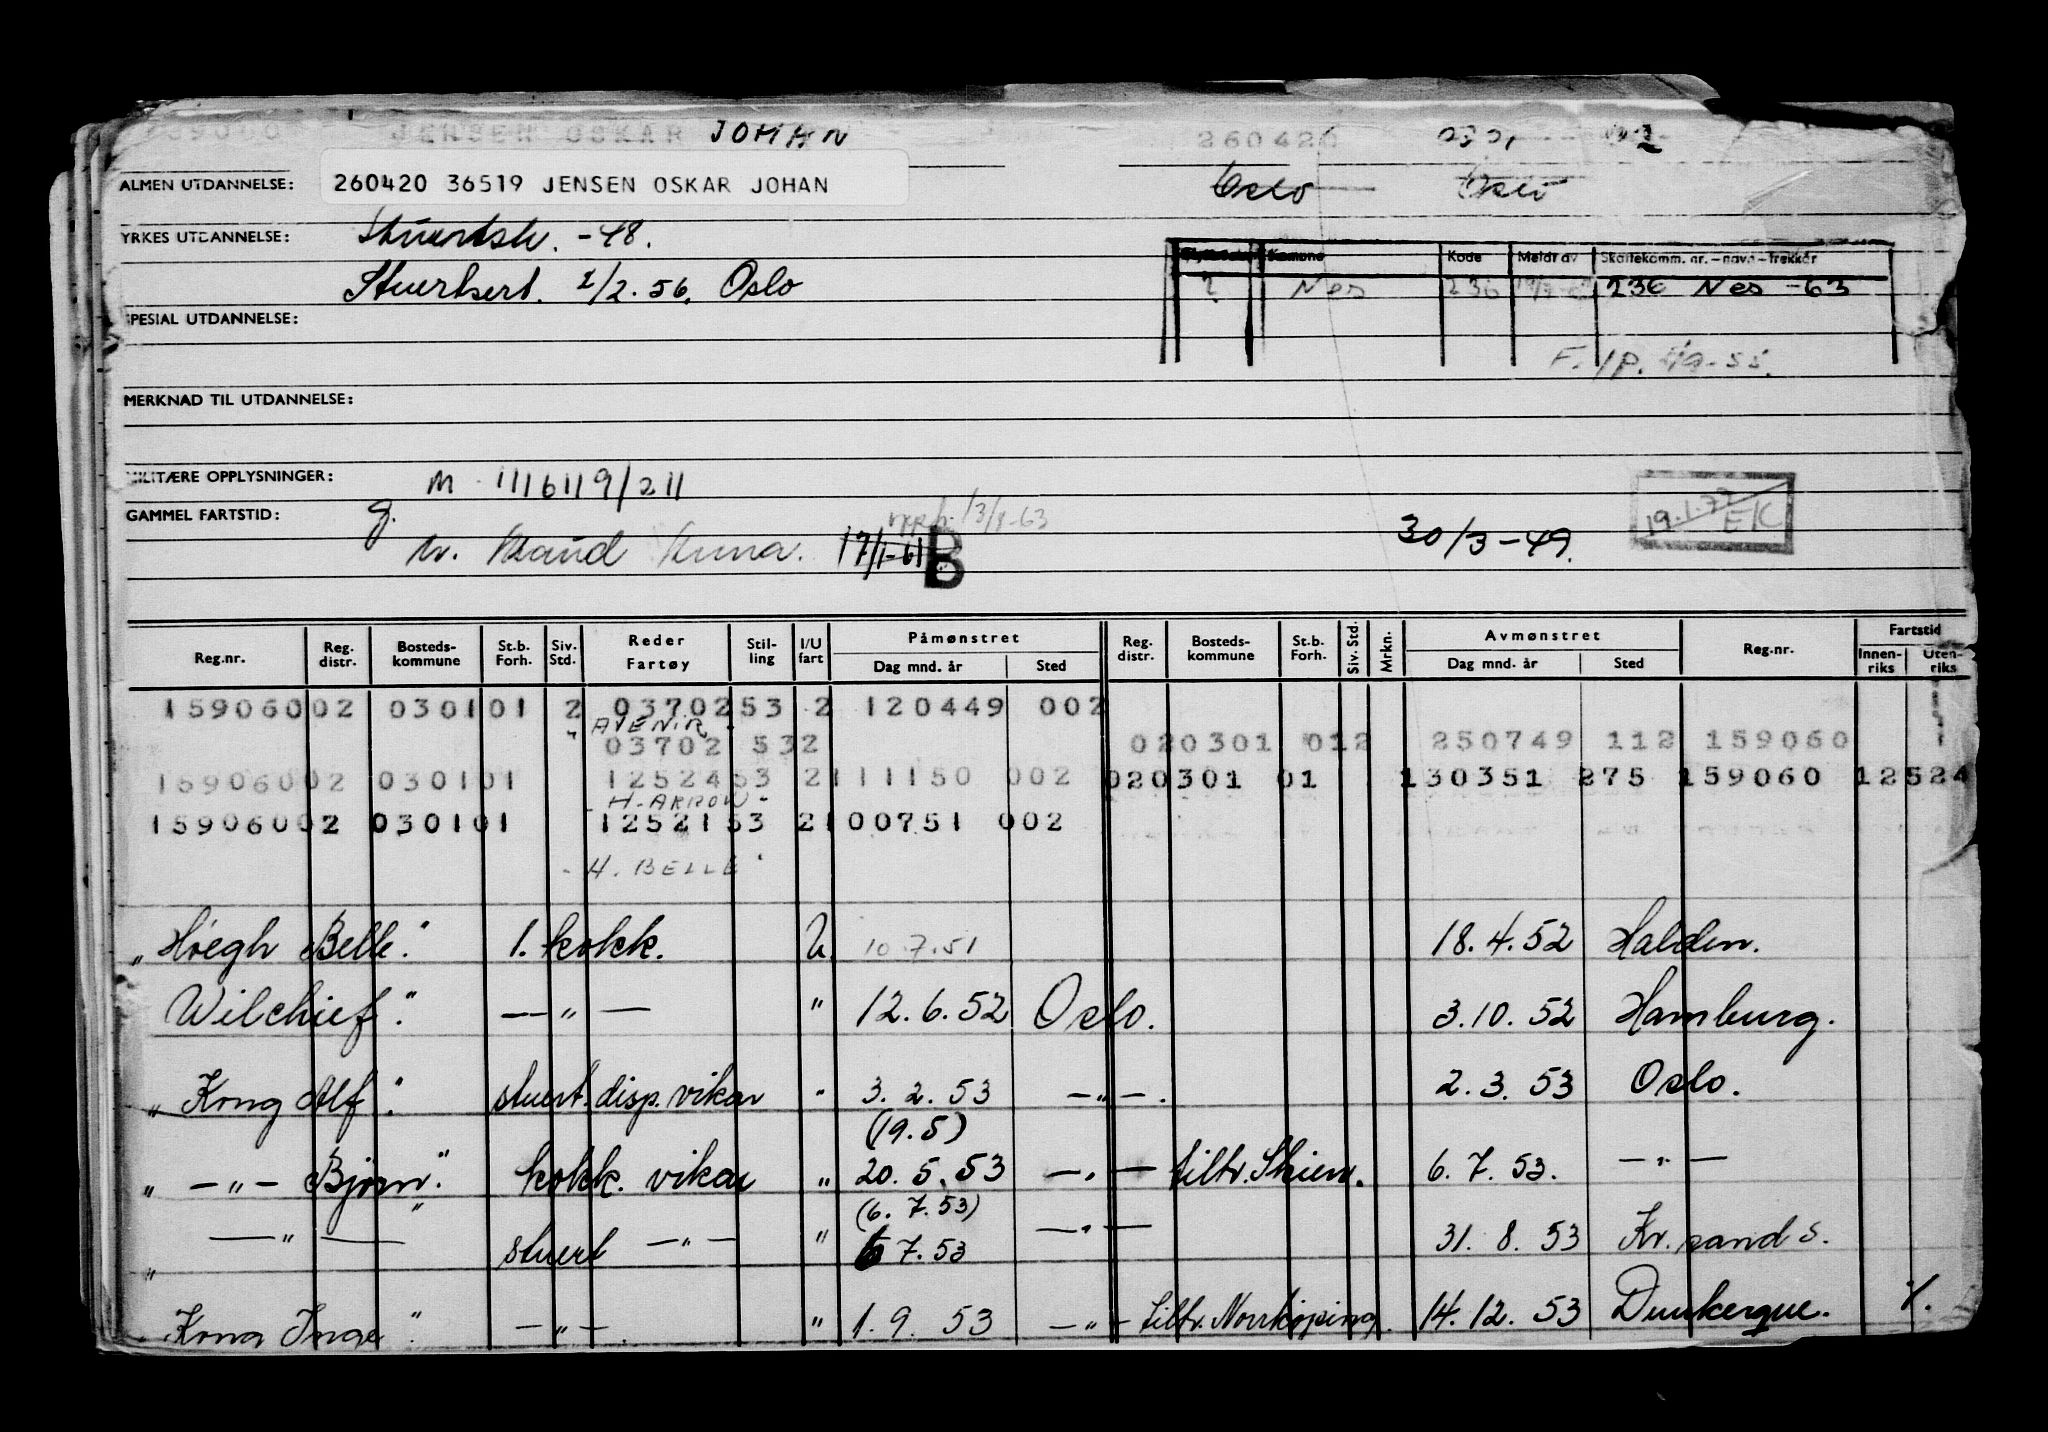 159060 JENSEN OSKAR JOHAN 260420
ALMEN UTDANNELSE: 260420 36519 JENSEN OSKAR JOHAN Oslo Oslo
YRKES UTDANNELSE: Stuertsk. -48.
Kommune Kode Meldt av Skattekomm. nr. – navn – trekkår
Stuertsert. 2/2.56. Oslo 2 Nes 236 236 Nes -63
SPESIAL UTDANNELSE:
F. 1p. 5/9-55.
MERKNAD TIL UTDANNELSE:
MILITÆRE OPPLYSNINGER: M 1116119/211
GAMMEL FARTSTID: g. opph. 13/8-63 19.1.77 EK
m. Maud Anna. 17/1-61 B 30/3-49.
Reg.nr. Reg. distr. Bosteds-kommune St.b. Forh. Siv. Std. Reder Fartøy Stil-ling I/U fart Påmønstret Dag mnd. år Sted Reg. distr. Bosteds-kommune St.b. Forh. Siv. Std. Mrkn. Avmønstret Dag mnd. år Sted Reg.nr. Fartstid Innen-riks Uten-riks
159060 02 0301 01 2 03702 53 2 120449 002
"AVENIR"
03702 53 2 02 0301 01 2 250749 112 159060
159060 02 0301 01 12524 53 2 111150 002 02 0301 01 130351 275 159060 12524
- H. ARROW -
159060 02 0301 01 12521 53 2 100751 002
- H. BELLE "
"Høegh Belle." 1. kokk. U. 10.7.51 18.4.52 Halden.
Wilchief." — " — " 12.6.52 Oslo. 3.10.52 Hamburg.
"Kong Alf". stuert. disp. vikar " 3.2.53 — " — . 2.3.53 Oslo.
(19.5)
" — " — Bjørn." kokk. vikar " 20.5.53 — " — tiltr. Skien. 6.7.53. — " —
(6.7.53)
" — " — " stuert — " — " 6 7.53 — " — 31.8.53 Kr.sand S.
Kong Inge". — " — . " 1.9.53 — " — tiltr. Norrköping. 14.12.53 Dunkerque. 1/.